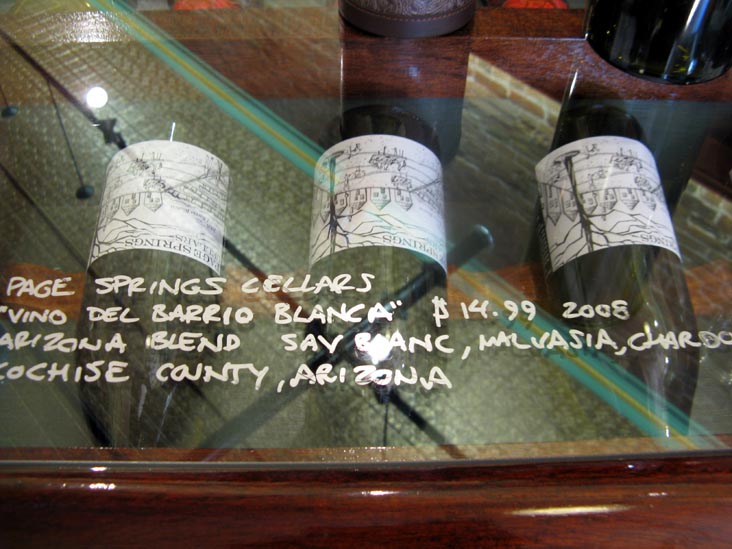 PAGE SPRINGS CELLARS
"VINO DEL BARRIO BLANCA" $14.99 2008
ARIZONA BLEND SAV BLANC, MALVASIA, CHARDO
COCHISE COUNTY, ARIZONA
PAGE SPRINGS
CELLARS